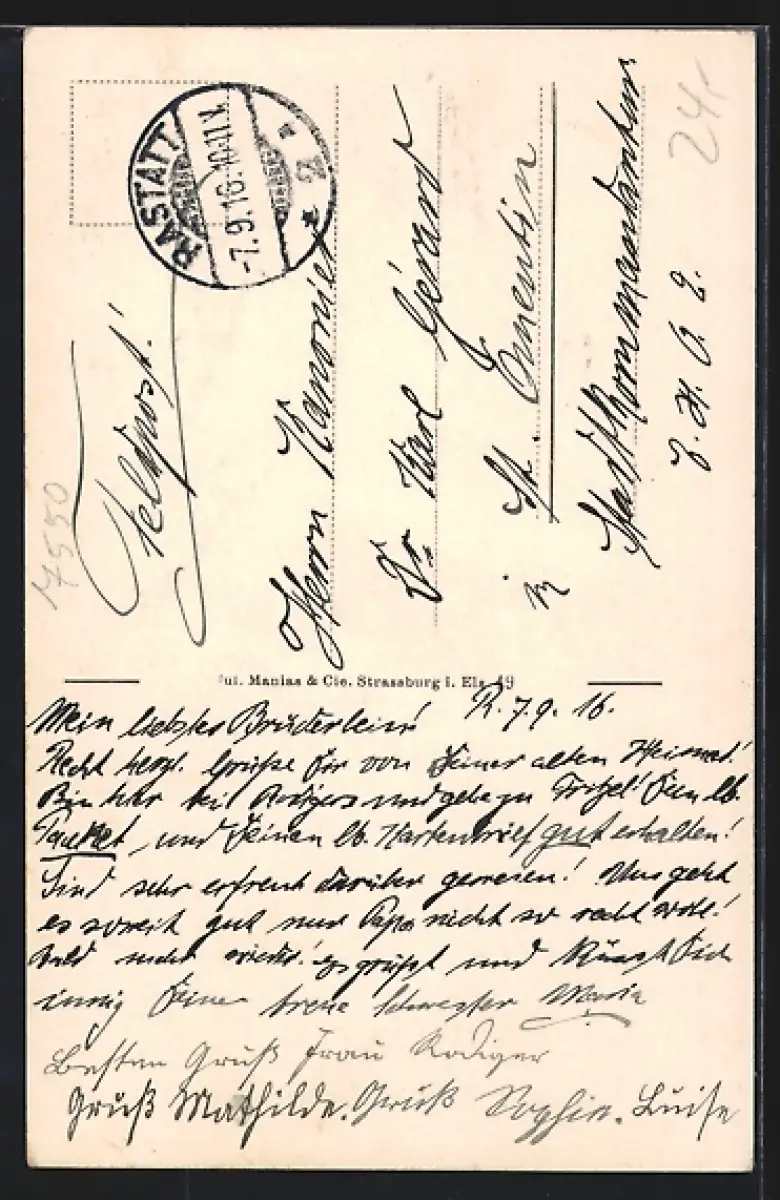 RASTATT
-7.9.16.10-11V.
* 2 a
Feldpost!
Herrn Kanonier
Dr. Karl Gérard
in St. Quentin
Stadtkommandantur
Z. H. Q. 2.
24,-
7550
Jul. Manias & Cie. Strassburg i. Els. 49
R. 7.9. 16.
Mein liebstes Brüderlein!
Recht herzl. Grüße Dir von Deiner alten Heimat!
Bin hier bei Rodigers und gehe zu Fritzel! Dein lb.
Packet, und Deinen lb. Kartenbrief gut erhalten!
Sind sehr erfreut darüber gewesen! Uns geht
es soweit gut nur Papa nicht so recht wohl!
Bald mehr wieder! Es grüßt und küsst Dich
innig Deine treue Schwester Maria
Besten Gruß Frau Rodiger
Gruß Mathilde. Gruß Sophie. Luise